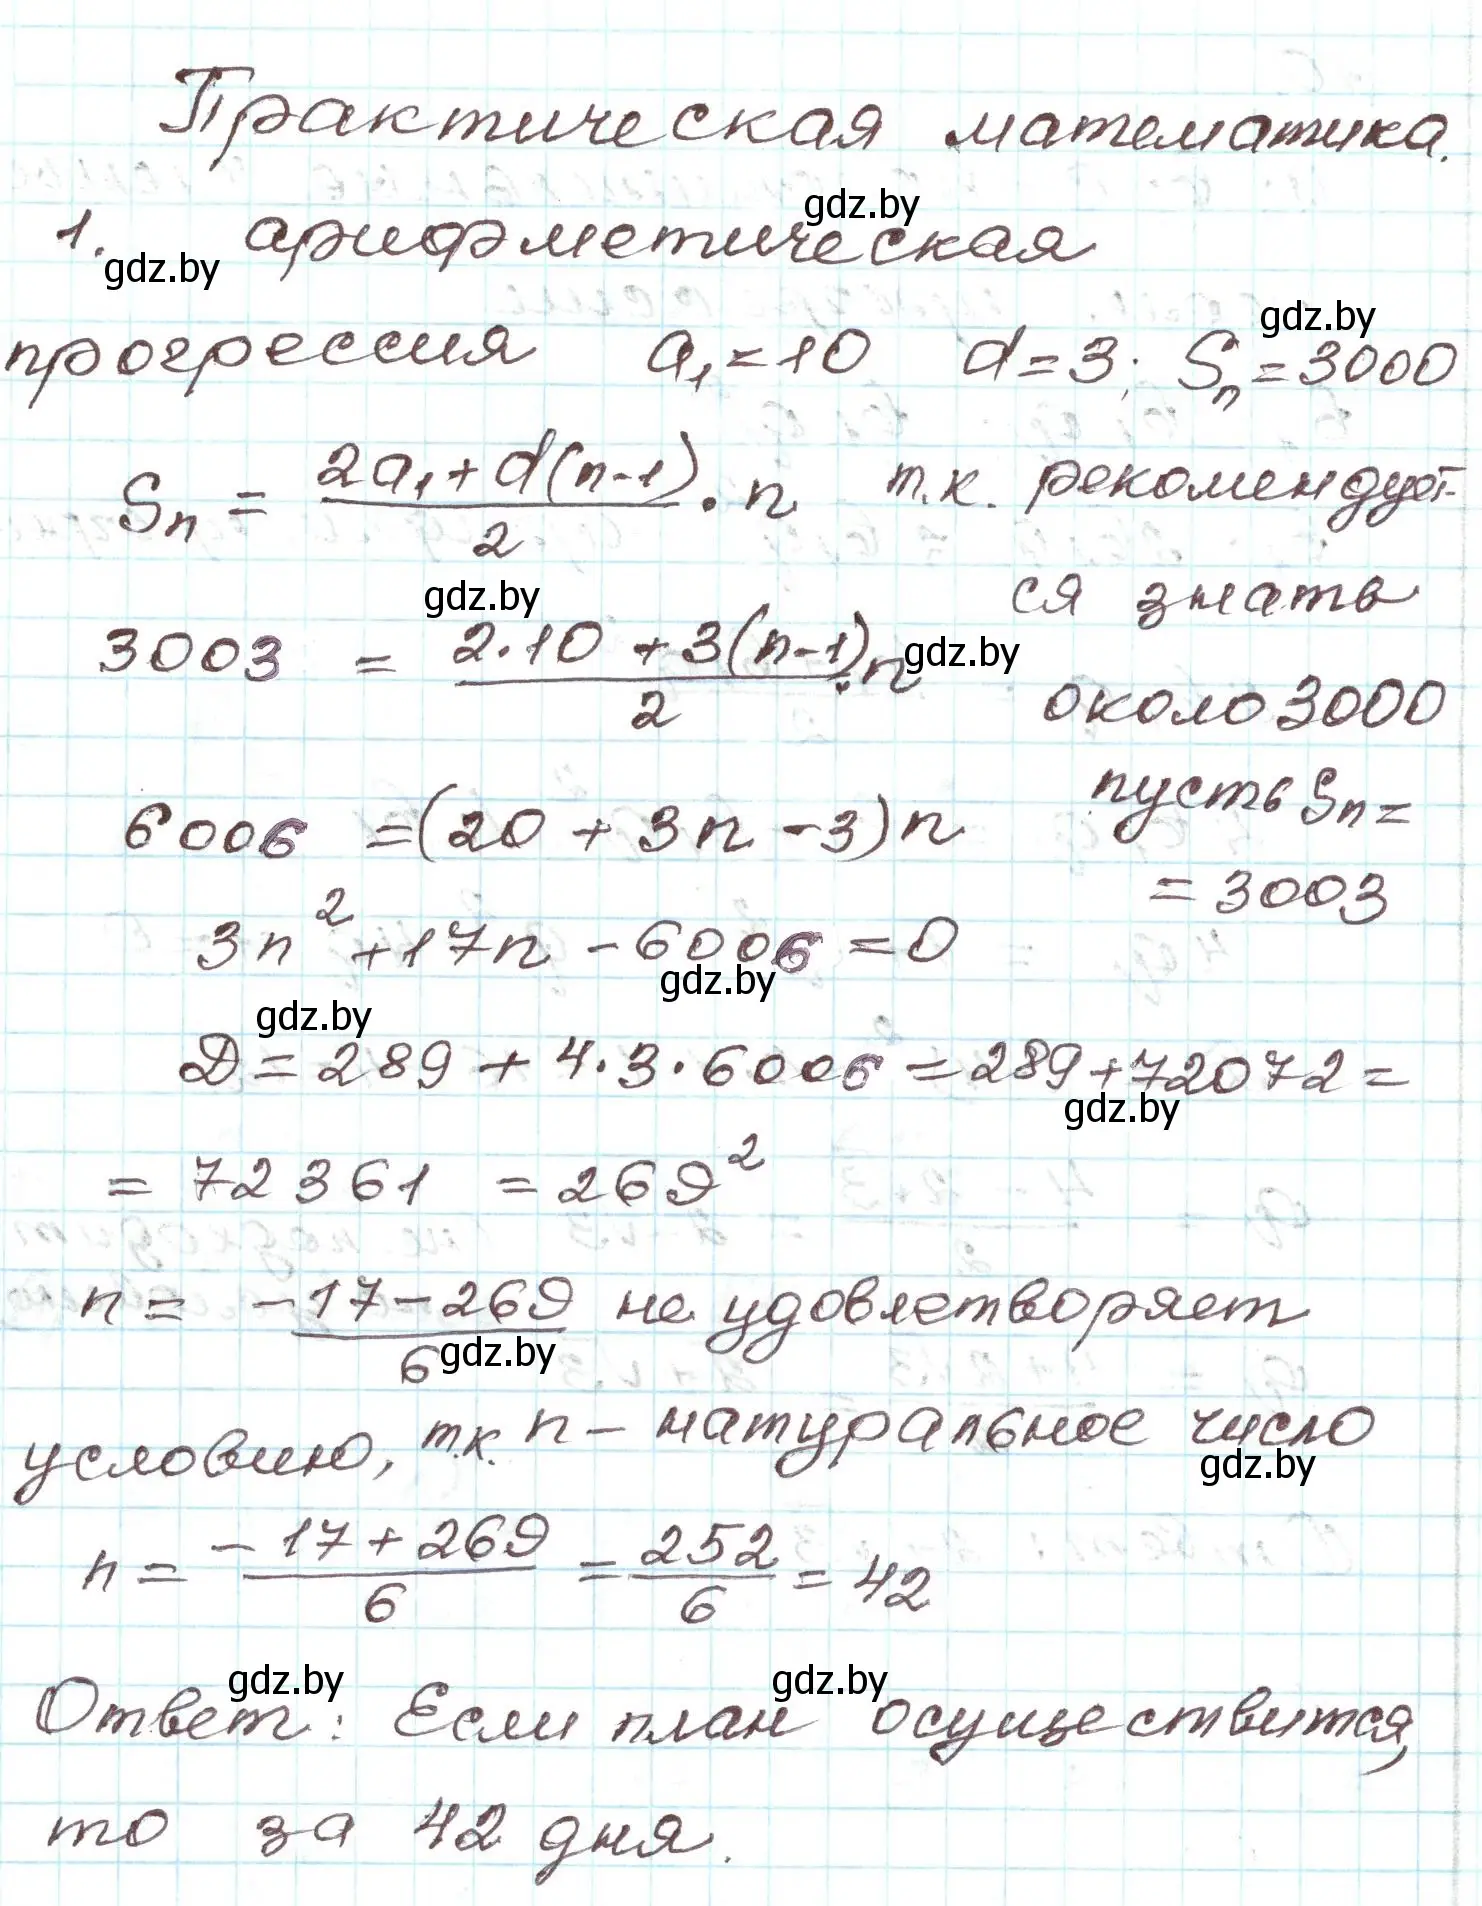 Практическая математика.
gdz.by
1. арифметическая
gdz.by
gdz.by
прогрессия a₁=10 d=3; Sₙ=3000
Sₙ = (2a₁+d(n-1))/2 · n т.к. рекомендует-
gdz.by
ся знать
3003 = (2·10+3(n-1))/2 · n
gdz.by
около 3000
6006 =(20+3n-3)n
пусть Sₙ=
=3003
3n²+17n-6006=0
gdz.by
gdz.by
Д=289+4·3·6006=289+72072=
gdz.by
=72361=269²
n= (-17-269)/6 не удовлетворяет
gdz.by
условию, т.к. n – натуральное число
gdz.by
n= (-17+269)/6 = 252/6 = 42
gdz.by
gdz.by
Ответ: Если план осуществится,
то за 42 дня.